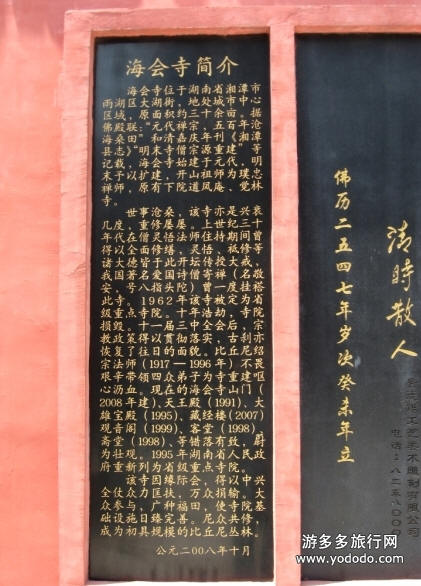 海会寺简介
海会寺位于湖南省湘潭市
雨湖区大湖街，地处城市中心
区域，原面积约三十余亩。据
佛殿联：“元代禅宗，五百年沧
海桑田”和清嘉庆年刊《湘潭
县志》“明末寺僧宗源重建”等
记载，海会寺始建于元代，明
末予以扩建，开山祖师为璞忠
禅师，原有下院道风庵、觉林
寺。
世事沧桑，该寺亦是兴衰
几度，重修屡屡。上世纪三十
年代在僧灵悟法师住持期间曾
得以全面修缮，灵悟、极修等
诸大德皆于此开坛传授大戒，
我国著名爱国诗僧寄禅（名敬
安，号八指头陀）曾一度挂褡
此寺。1962年该寺被定为省
级重点寺院。十年浩劫，寺院
损毁。十一届三中全会后，宗
教政策得以贯彻落实，古刹亦
恢复了往日的面貌。比丘尼绍
宗法师（1917—1996年）不畏
艰辛带领四众弟子为寺重建呕
心沥血。现在的海会寺山门（
2008年建）、天王殿（1991）、大
雄宝殿（1995）、藏经楼（2007）
观音阁（1999）、客堂（1998）、
斋堂（1998）、等错落有致，蔚
为壮观。1995年湖南省人民政
府重新列为省级重点寺院。
该寺因缘际会，得以中兴
全仗众力匡扶，万众捐输。大
众参与，广种福田，使寺院基
础设施日臻完善。尼众共修，
成为初具规模的比丘尼丛林。
公元二00八年十月
佛历二五四七年岁次癸未年立
清時散人
游多多旅行网
www.yododo.com